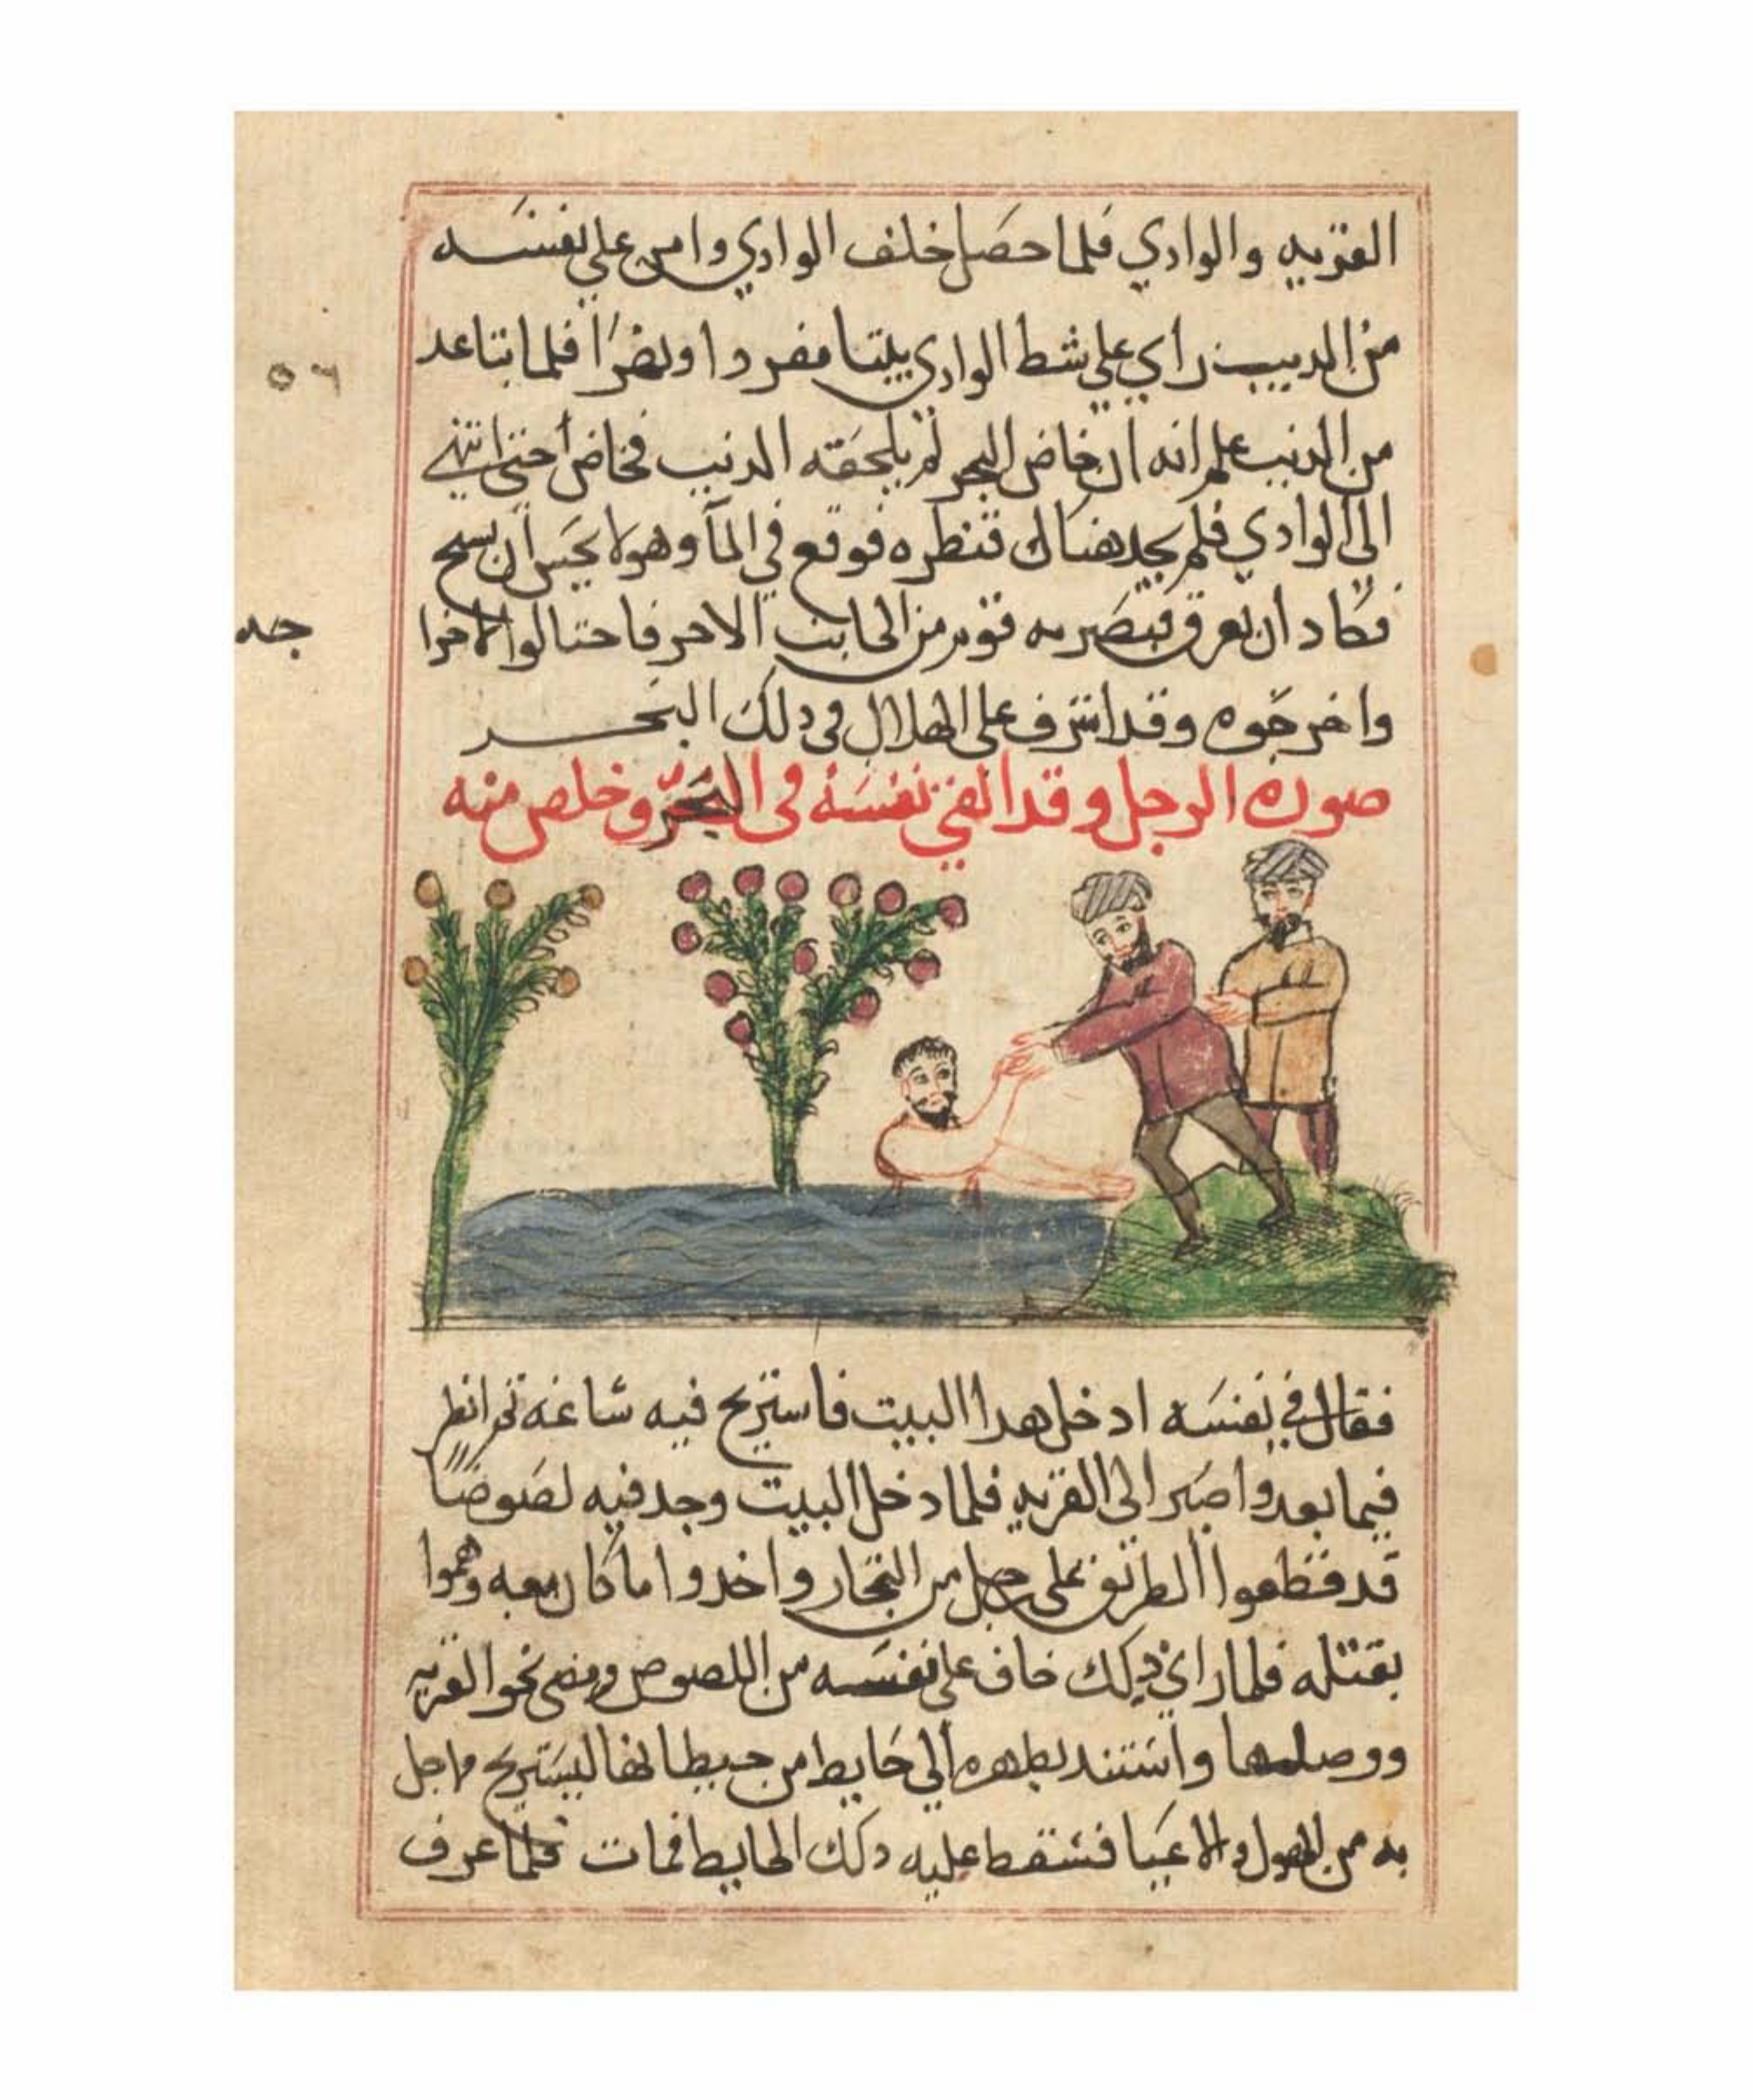 القريه والوادي فلما حصل خلف الوادي وامن على نفسه
من الديب راي علي شط الوادي بيتا مفردا فلما تباعد
من الديب علم انه ان خاض البحر لم يلحقه الديب فخاض حتى انتهى
الى الوادي فلم يجد هناك قنطره فوقع في المآ وهو لا يحسن ان يسبح
فكاد ان يغرق فبصر به قوم من الجانب الاخر فاحتالوا لاخرا
جه
واخرجوه وقد اشرف على الهلاك في دلك البحر
صورة الرجل وقد القي نفسه في البحر وخلص منه
فقال في نفسه ادخل هدا البيت فاستريح فيه ساعه ثم انظر
فيما بعد واصير الى القريه فلما دخل البيت وجد فيه لصوصا
قد قطعوا الطريق على رجل من التجار واخدوا ما كان معه وهموا
بقتله فلما راى دلك خاف على نفسه من اللصوص ومضى نحو القريه
ووصلها واستند بظهره الى حايط من حيطانها ليستريح مما حل
به من الهول والاعيا فسقط عليه دلك الحايط فمات فلما عرف
٥٦